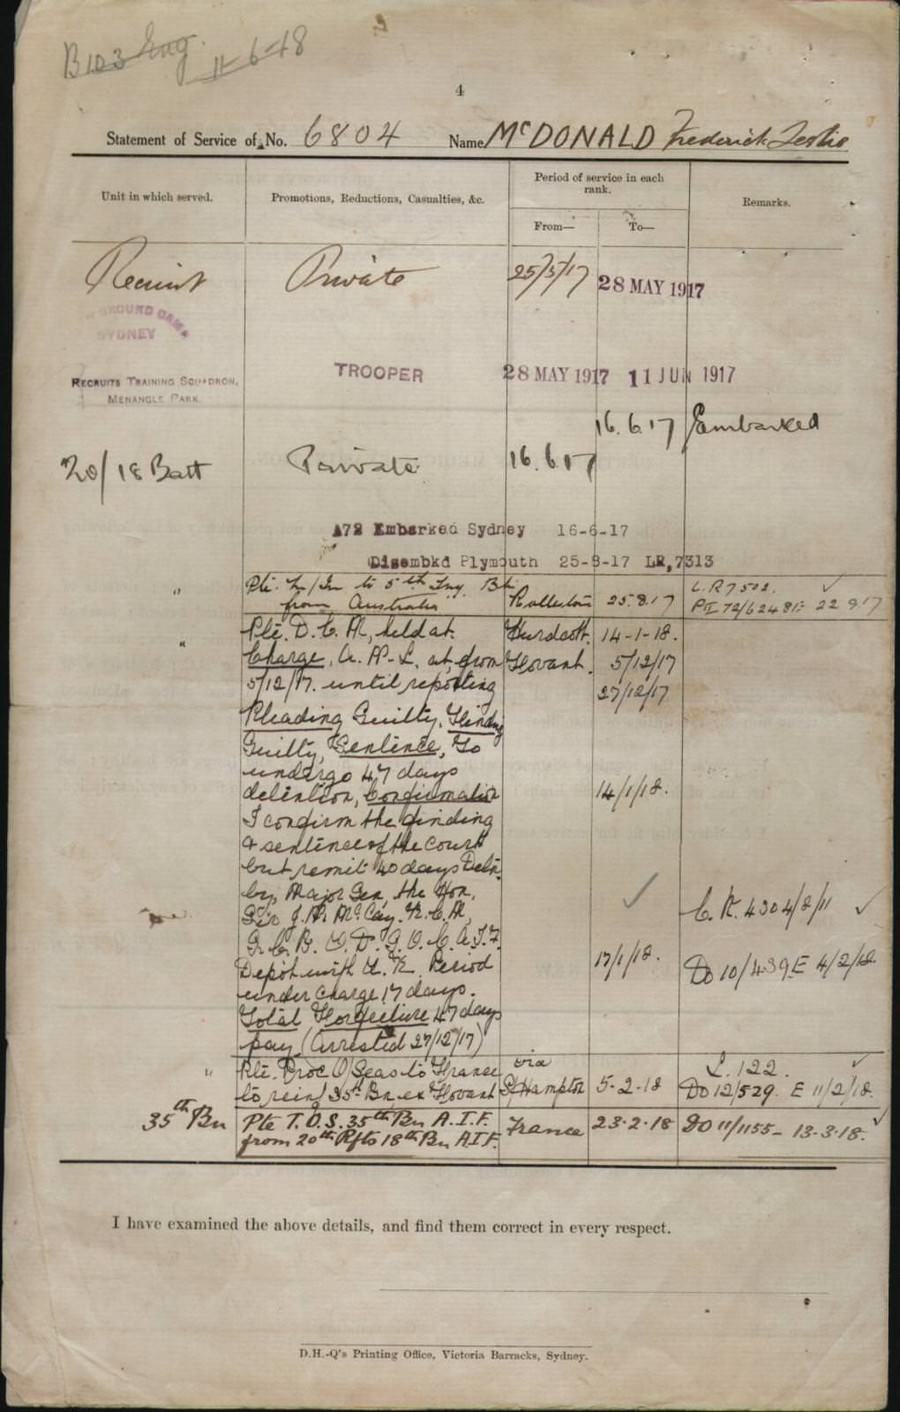 B103 Eng. 11-6-18
4
Statement of Service of No. 6804 Name McDONALD Frederick Leslie
Unit in which served. Promotions, Reductions, Casualties, &c. Period of service in each rank. Remarks.
From— To—
Recruit Private 25/5/17 28 MAY 1917
GROUND CAMP
SYDNEY
RECRUITS TRAINING SQUADRON, TROOPER 28 MAY 1917 11 JUN 1917
MENANGLE PARK.
16.6.17 Embarked
20/18 Batt Private 16.6.17
A72 Embarked Sydney 16-6-17
Disembkd Plymouth 25-8-17 LR,7313
" Pte. M/In to 5th Tng. Bn
from Australia Rollestone 25.8.17 L.R 7502.
22 9 17
" Pte. D.C.M, held at Hurdcott. 14-1-18.
Charge, A.W.L. at, from Hovant. 5/12/17
5/12/17. until reporting 27/12/17
Pleading Guilty, Finding
Guilty, Sentence, To
undergo 47 days
detention, Confirmation 14/1/18.
I confirm the finding
& sentence of the Court
but remit 40 days Detn.
by, Major Gen, the Hon,
Sir J. W. McCay. K.C.M,
G.C.B. V.D. G.O.C. A.I.F C.R. 4304/8/11
Depot with U.K. Period 17/1/18. Do 10/439E 4/2/18.
under Charge 17 days.
Total Forfeiture 47 days
pay (Arrested 27/12/17)
" Pte. Proc O/Seas to France via L.122.
to reinf 35th Bn. ex Hovant S'Hampton 5-2-18 Do 12/529. E 11/2/18.
35th Bn Pte T.O.S. 35th Bn A.I.F. France 23-2-18 DO 11/1155- 13-3-18.
from 20th Rfts 18th Bn A.I.F.
I have examined the above details, and find them correct in every respect.
D.H.-Q's Printing Office, Victoria Barracks, Sydney.